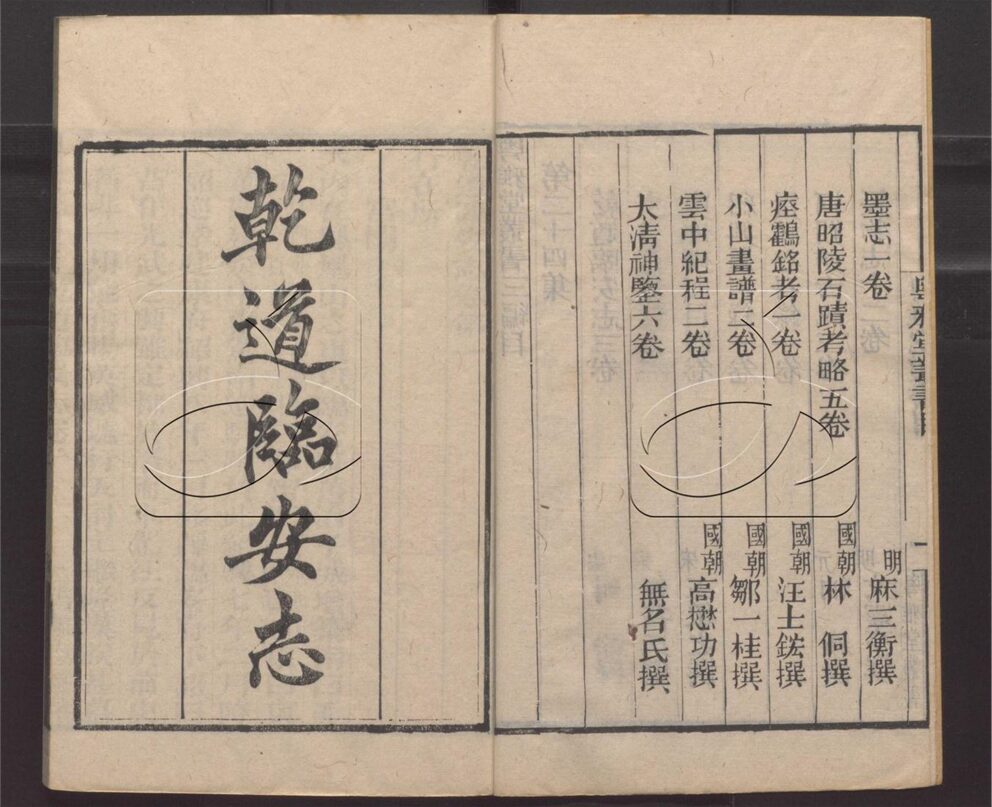 墨志一卷 明 麻三衡撰
唐昭陵石蹟考略五卷 國朝 林侗撰
瘞鶴銘考一卷 國朝 汪士鋐撰
小山畫譜二卷 國朝 鄒一桂撰
雲中紀程二卷 國朝 高懋功撰
太清神鑒六卷 無名氏撰
乾道臨安志